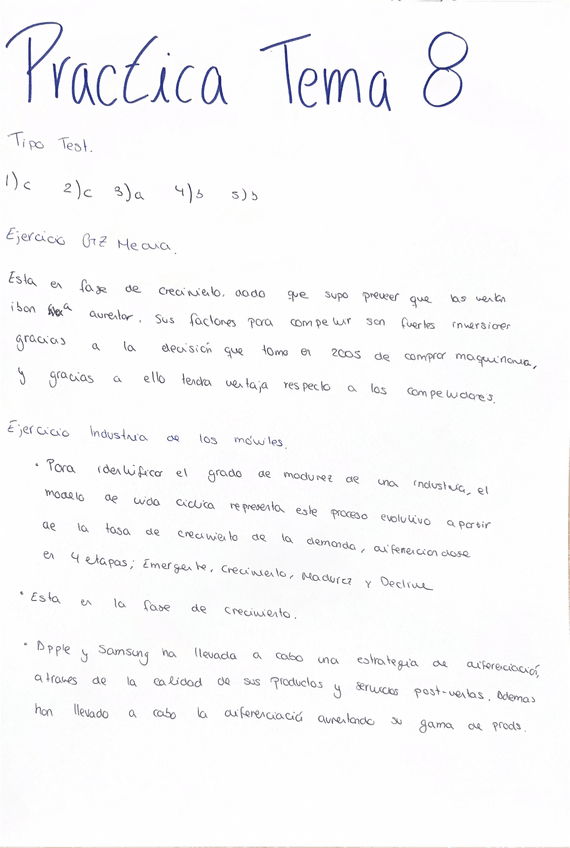 Practica Tema 8
Tipo Test.
1) c 2) c 3) a 4) b 5) b
Ejercicio GZ Meccia.
Esta en fase de creciniento. dado que supo preveer que las ventas
iban a aumentar. Sus factores para competir son fuertes inversiones
gracias a la decisión que tomo en 2005 de comprar maquinaria,
y gracias a ello tendra ventaja respecto a los competidores.
Ejercicio Industria de los móviles.
• Para identificar el grado de madurez de una industria, el
modelo de vida ciclica representa este proceso evolutivo a partir
de la tasa de crecimiento de la demanda, diferenciandose
en 4 etapas; Emergente, Crecimiento, Madurez y Declive
• Esta en la fase de crecimiento.
• Apple y Samsung ha llevada a cabo una estrategia de diferenciació,
atraves de la calidad de sus productos y servicios post-ventas. Ademas
han llevado a cabo la diferenciació aumentando su gama de prods.